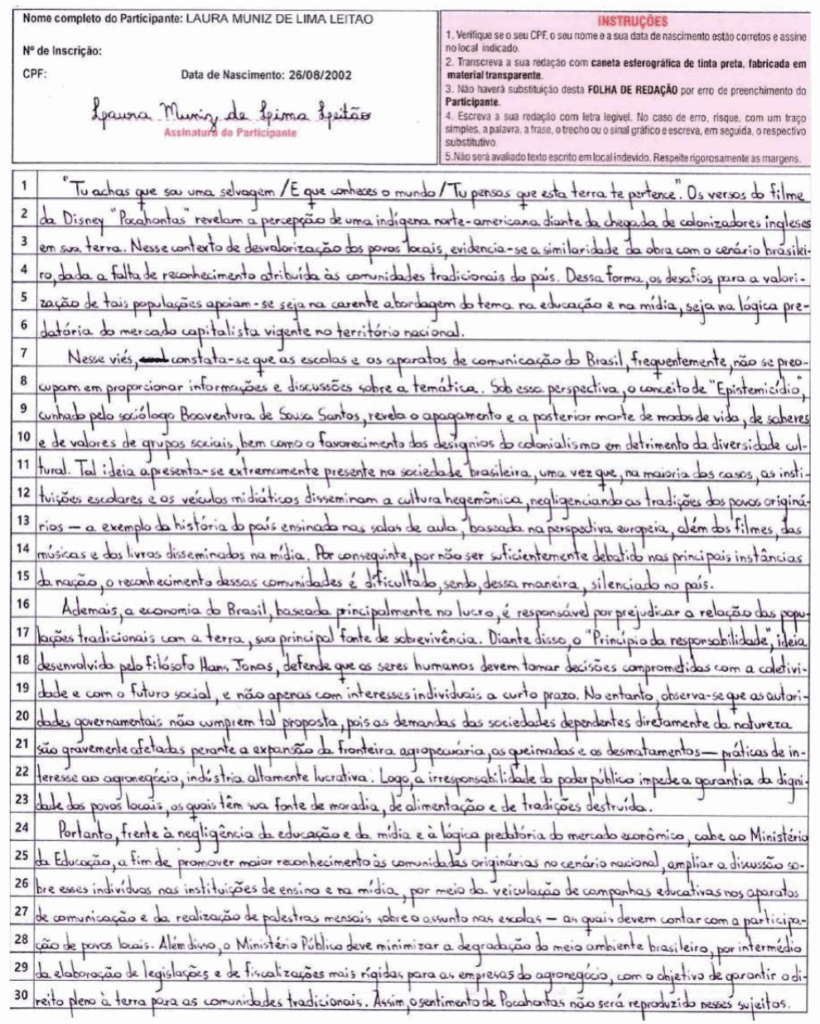 Nome completo do Participante: LAURA MUNIZ DE LIMA LEITAO
Nº de Inscrição:
CPF:
Data de Nascimento: 26/08/2002
Laura Muniz de Lima Leitão
Assinatura do Participante
INSTRUÇÕES
1. Verifique se o seu CPF, o seu nome e a sua data de nascimento estão corretos e assine
no local indicado.
2. Transcreva a sua redação com caneta esferográfica de tinta preta, fabricada em
material transparente.
3. Não haverá substituição desta FOLHA DE REDAÇÃO por erro de preenchimento do
Participante.
4. Escreva a sua redação com letra legível. No caso de erro, risque, com um traço
simples, a palavra, a frase, o trecho ou o sinal gráfico e escreva, em seguida, o respectivo
substitutivo.
5.Não será avaliado texto escrito em local indevido. Respeite rigorosamente as margens.
1 "Tu achas que sou uma selvagem /E que conheces o mundo /Tu pensas que esta terra te pertence". Os versos do filme
2 da Disney "Pocahontas" revelam a percepção de uma indígena norte-americana diante da chegada de colonizadores ingleses
3 em sua terra. Nesse contexto de desvalorização dos povos locais, evidencia-se a similaridade da obra com o cenário brasilei-
4 ro, dada a falta de reconhecimento atribuída às comunidades tradicionais do país. Dessa forma, os desafios para a valori-
5 zação de tais populações apoiam-se seja na carente abordagem do tema na educação e na mídia, seja na lógica pre-
6 datória do mercado capitalista vigente no território nacional.
7 Nesse viés, constata-se que as escolas e os aparatos de comunicação do Brasil, frequentemente, não se preo-
8 cupam em proporcionar informações e discussões sobre a temática. Sob essa perspectiva, o conceito de "Epistemicídio",
9 cunhado pelo sociólogo Boaventura de Sousa Santos, revela o apagamento e a posterior morte de modos de vida, de saberes
10 e de valores de grupos sociais, bem como o favorecimento dos desígnios do colonialismo em detrimento da diversidade cul-
11 tural. Tal ideia apresenta-se extremamente presente na sociedade brasileira, uma vez que, na maioria dos casos, as insti-
12 tuições escolares e os veículos midiáticos disseminam a cultura hegemônica, negligenciando as tradições dos povos originá-
13 rios — a exemplo da história do país ensinada nas salas de aula, baseada na perspectiva europeia, além dos filmes, das
14 músicas e dos livros disseminados na mídia. Por conseguinte, por não ser suficientemente debatido nas principais instâncias
15 da nação, o reconhecimento dessas comunidades é dificultado, sendo, dessa maneira, silenciado no país.
16 Ademais, a economia do Brasil, baseada principalmente no lucro, é responsável por prejudicar a relação das popu-
17 lações tradicionais com a terra, sua principal fonte de sobrevivência. Diante disso, o "Princípio da responsabilidade", ideia
18 desenvolvida pelo filósofo Hans Jonas, defende que os seres humanos devem tomar decisões comprometidas com a coletivi-
19 dade e com o futuro social, e não apenas com interesses individuais a curto prazo. No entanto, observa-se que as autori-
20 dades governamentais não cumprem tal proposta, pois as demandas das sociedades dependentes diretamente da natureza
21 são gravemente afetadas perante a expansão da fronteira agropecuária, as queimadas e os desmatamentos — práticas de in-
22 teresse ao agronegócio, indústria altamente lucrativa. Logo, a irresponsabilidade do poder público impede a garantia da digni-
23 dade dos povos locais, os quais têm sua fonte de moradia, de alimentação e de tradições destruída.
24 Portanto, frente à negligência da educação e da mídia e à lógica predatória do mercado econômico, cabe ao Ministério
25 da Educação, a fim de promover maior reconhecimento às comunidades originárias no cenário nacional, ampliar a discussão so-
26 bre esses indivíduos nas instituições de ensino e na mídia, por meio da veiculação de campanhas educativas nos aparatos
27 de comunicação e da realização de palestras mensais sobre o assunto nas escolas — as quais devem contar com a participa-
28 ção de povos locais. Além disso, o Ministério Público deve minimizar a degradação do meio ambiente brasileiro, por intermédio
29 da elaboração de legislações e de fiscalizações mais rígidas para as empresas do agronegócio, com o objetivo de garantir o di-
30 reito pleno à terra para as comunidades tradicionais. Assim, o sentimento de Pocahontas não será reproduzido nesses sujeitos.